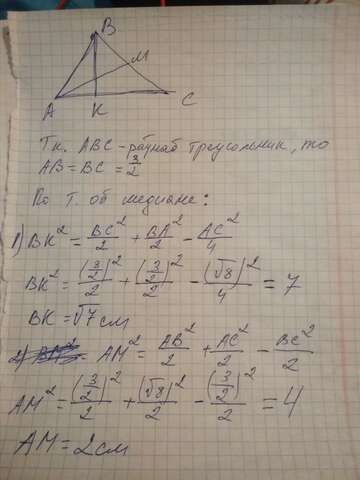 B
M
A
K
C
Т.к. ABC - равнаб треугольник, то
AB = BC = 3/2
По т. об медиане:
1) BK² = BC²/2 + BA²/2 - AC²/4
BK² = (3/2)²/2 + (3/2)²/2 - (√8)²/4 = 7
BK = √7 см
2) AM² = AB²/2 + AC²/2 - BC²/2
AM² = (3/2)²/2 + (√8)²/2 - (3/2)²/2 = 4
AM = 2 см